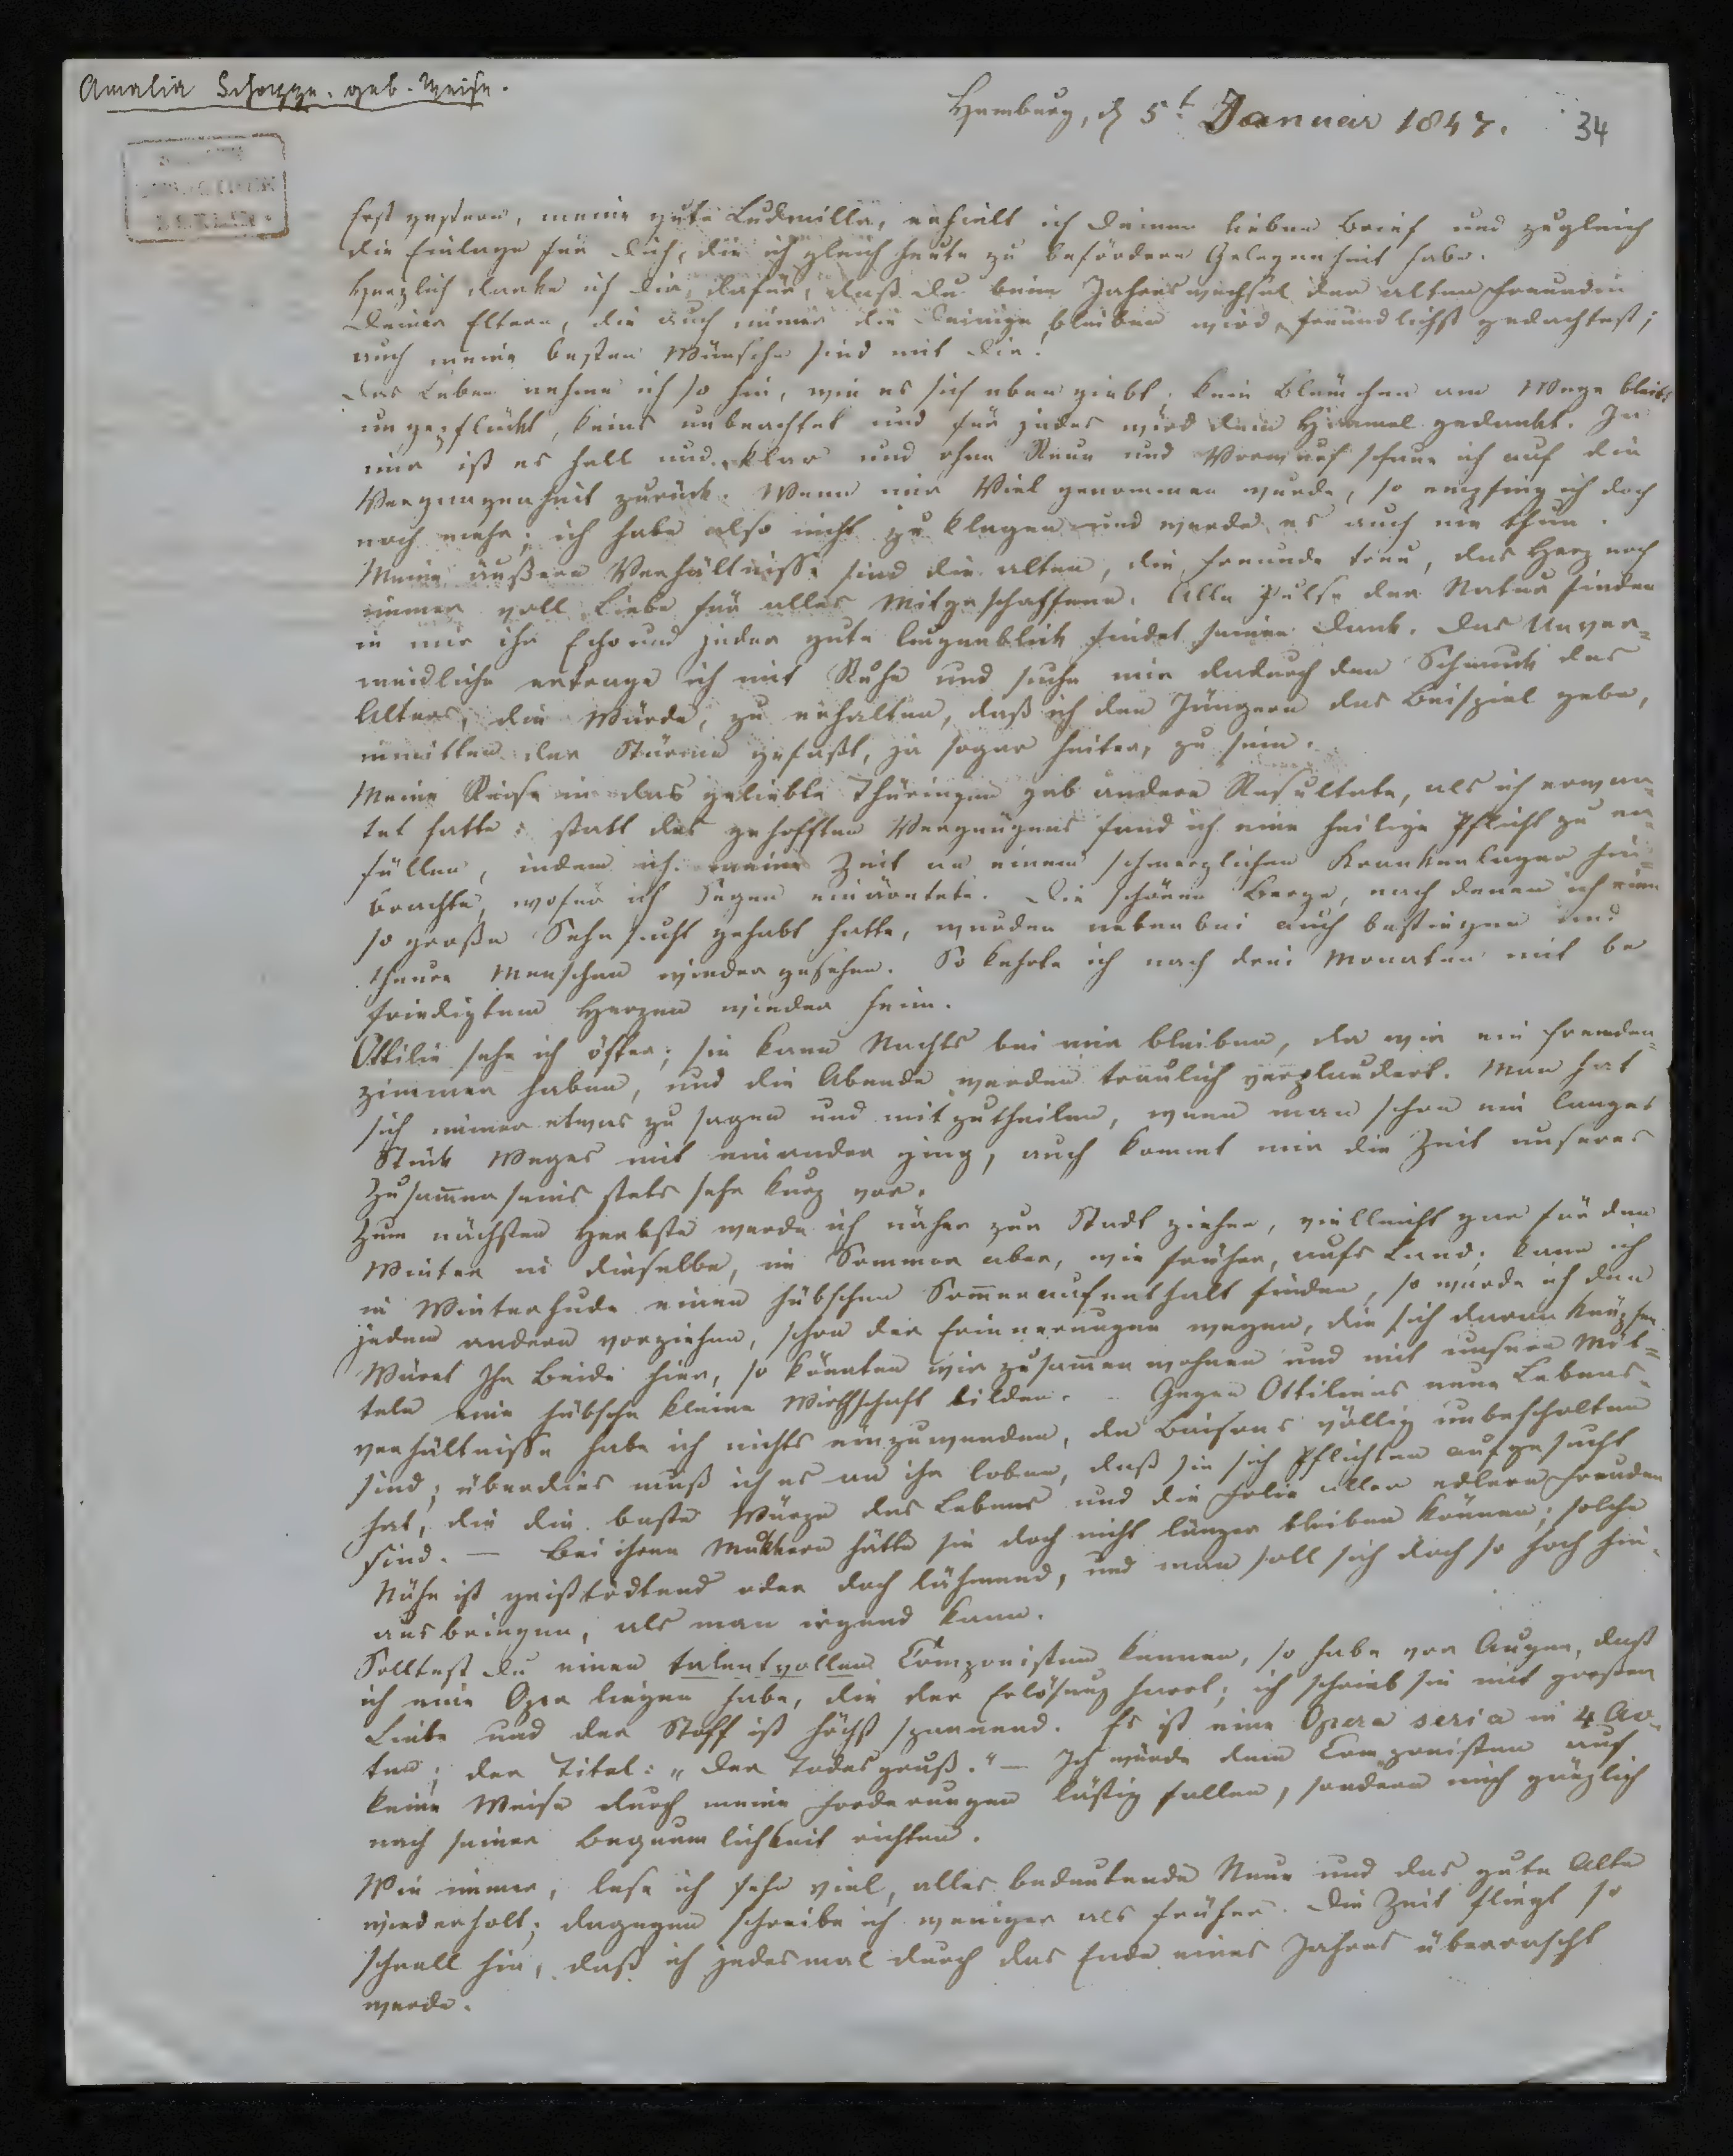 Amalia Schoppe. geb. Weise.
Hamburg, d 5t Januar 1847.
34
Erst gestern, meine gute Ludmilla, erhielt ich Deinen lieben Brief und zugleich
die Einlage für Dich, die ich gleich heute zu befördern Gelegenheit habe.
Herzlich danke ich Dir dafür, daß Du beim Jahreswechsel der alten Freundin
Deiner Eltern, die auch immer die Deinige bleiben wird, freundlichst gedachtest;
auch meine besten Wünsche sind mit Dir.
Das Leben nehme ich so hin, wie es sich eben giebt. Kein Blümchen am Wege bleibt
ungepflückt, keins unbeachtet und für jedes wird dem Himmel gedankt. In
mir ist es hell und klar und ohne Reue und Vorwurf schaue ich auf die
Vergangenheit zurück. Wenn mir Viel genommen wurde, so empfing ich doch
noch mehr; ich habe also nicht zu klagen und werde es auch nie thun.
Meine äußern Verhältnisse sind die alten, die Freunde treu, das Herz noch
immer voll Liebe für alles Mitgeschaffene. Alle Pulse der Natur finden
in mir ihr Echo und jeder gute Augenblick findet seinen Dank. Das Unver=
meidliche ertrage ich mit Ruhe und suche mir dadurch den Schmuck des
Alters, die Würde, zu erhalten, daß ich den Jüngern das Beispiel gebe,
inmitten der Stürme gefaßt, ja sogar heiter, zu sein.
Meine Reise in das geliebte Thüringen gab andere Resultate, als ich erwar=
tet hatte: statt des gehofften Vergnügens fand ich eine heilige Pflicht zu er=
füllen, indem ich meine Zeit an einem schmerzlichen Krankenlager hin=
brachte, wofür ich Segen einärntete. Die schönen Berge, nach denen ich eine
so große Sehnsucht gehabt hatte, wurden nebenbei auch bestiegen und
theure Menschen wieder gesehen. So kehrte ich nach drei Monaten mit be
friedigtem Herzen wieder heim.
Ottilie sehe ich öfter; sie kann Nachts bei mir bleiben, da wir ein Fremden=
zimmer haben, und die Abende werden traulich verplaudert. Man hat
sich immer etwas zu sagen und mitzutheilen, wenn man schon ein langes
Stück Weges mit einander ging, auch kommt mir die Zeit unseres
Zusammenseins stets sehr kurz vor.
Zum nächsten Herbste werde ich näher zur Stadt ziehen, vielleicht gar für den
Winter in dieselbe, im Sommer aber, wie früher, aufs Land; kann ich
in Winterhude einen hübschen Sommeraufenthalt finden, so würde ich den
jedem andern vorziehen, schon der Erinnerungen wegen, die sich daran knüpfen.
Wäret Ihr Beide hier, so könnten wir zusammen wohnen und mit unsern Mit=
teln eine hübsche kleine Wirthschaft bilden. – Gegen Ottiliens neue Lebens=
verhältnisse habe ich nichts einzuwenden, da Baisons völlig unbescholten
sind; überdies muß ich es an ihr loben, daß sie sich Pflichten aufgesucht
hat, die die beste Würze des Lebens und die Folie aller edlern Freuden
sind. — Bei ihren Müttern hätte sie doch nicht länger bleiben können; solche
Nähe ist geisttödtend oder doch lähmend, und man soll sich doch so hoch hin=
aus bringen, als man irgend kann.
Solltest Du einen talentvollen Componisten kennen, so habe vor Augen, daß
ich eine Oper liegen habe, die der Erlösung harrt; ich schrieb sie mit großer
Liebe und der Stoff ist höchst spannend. Es ist eine Opera seria in 4 Ac=
ten; der Titel: „Der Todesgruß." — Ich würde dem Componisten auf
keine Weise durch meine Forderungen lästig fallen, sondern mich gänzlich
nach seiner Bequemlichkeit richten.
Wie immer, lese ich sehr viel, alles bedeutende Neue und das gute Alte
wiederholt; dagegen schreibe ich weniger als früher. Die Zeit fliegt so
schnell hin, daß ich jedesmal durch das Ende eines Jahres überrascht
werde.